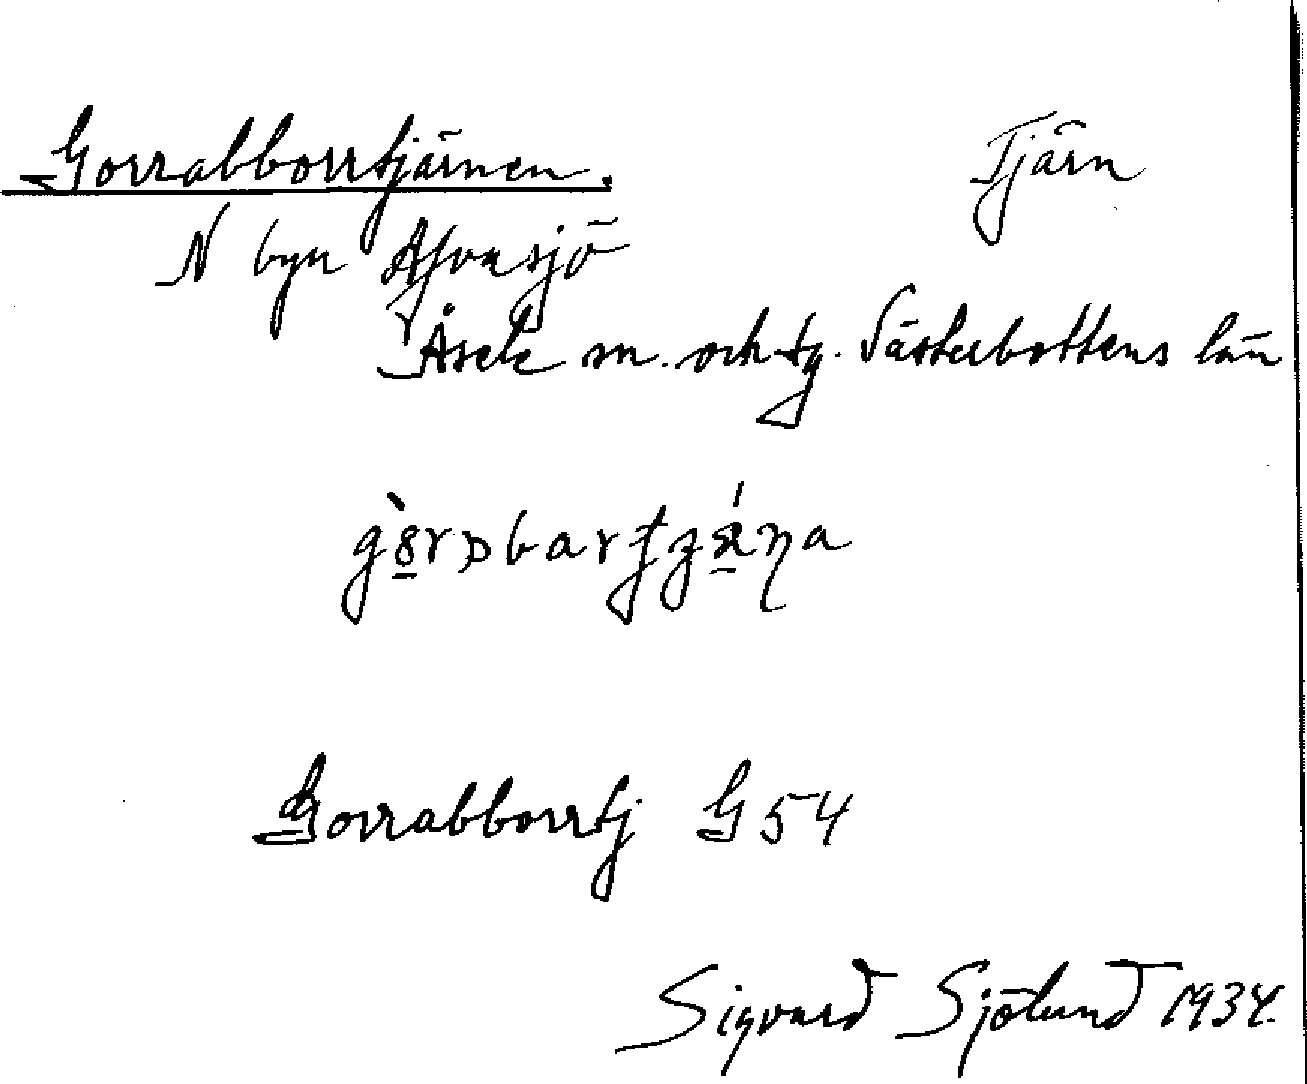 Gorrabborrtjärnen. Tjärn
N byn Afvasjö
Åsele sn. och tg. Västerbottens län
Gorrabborrtj G 54
Sigvard Sjölund 1934.